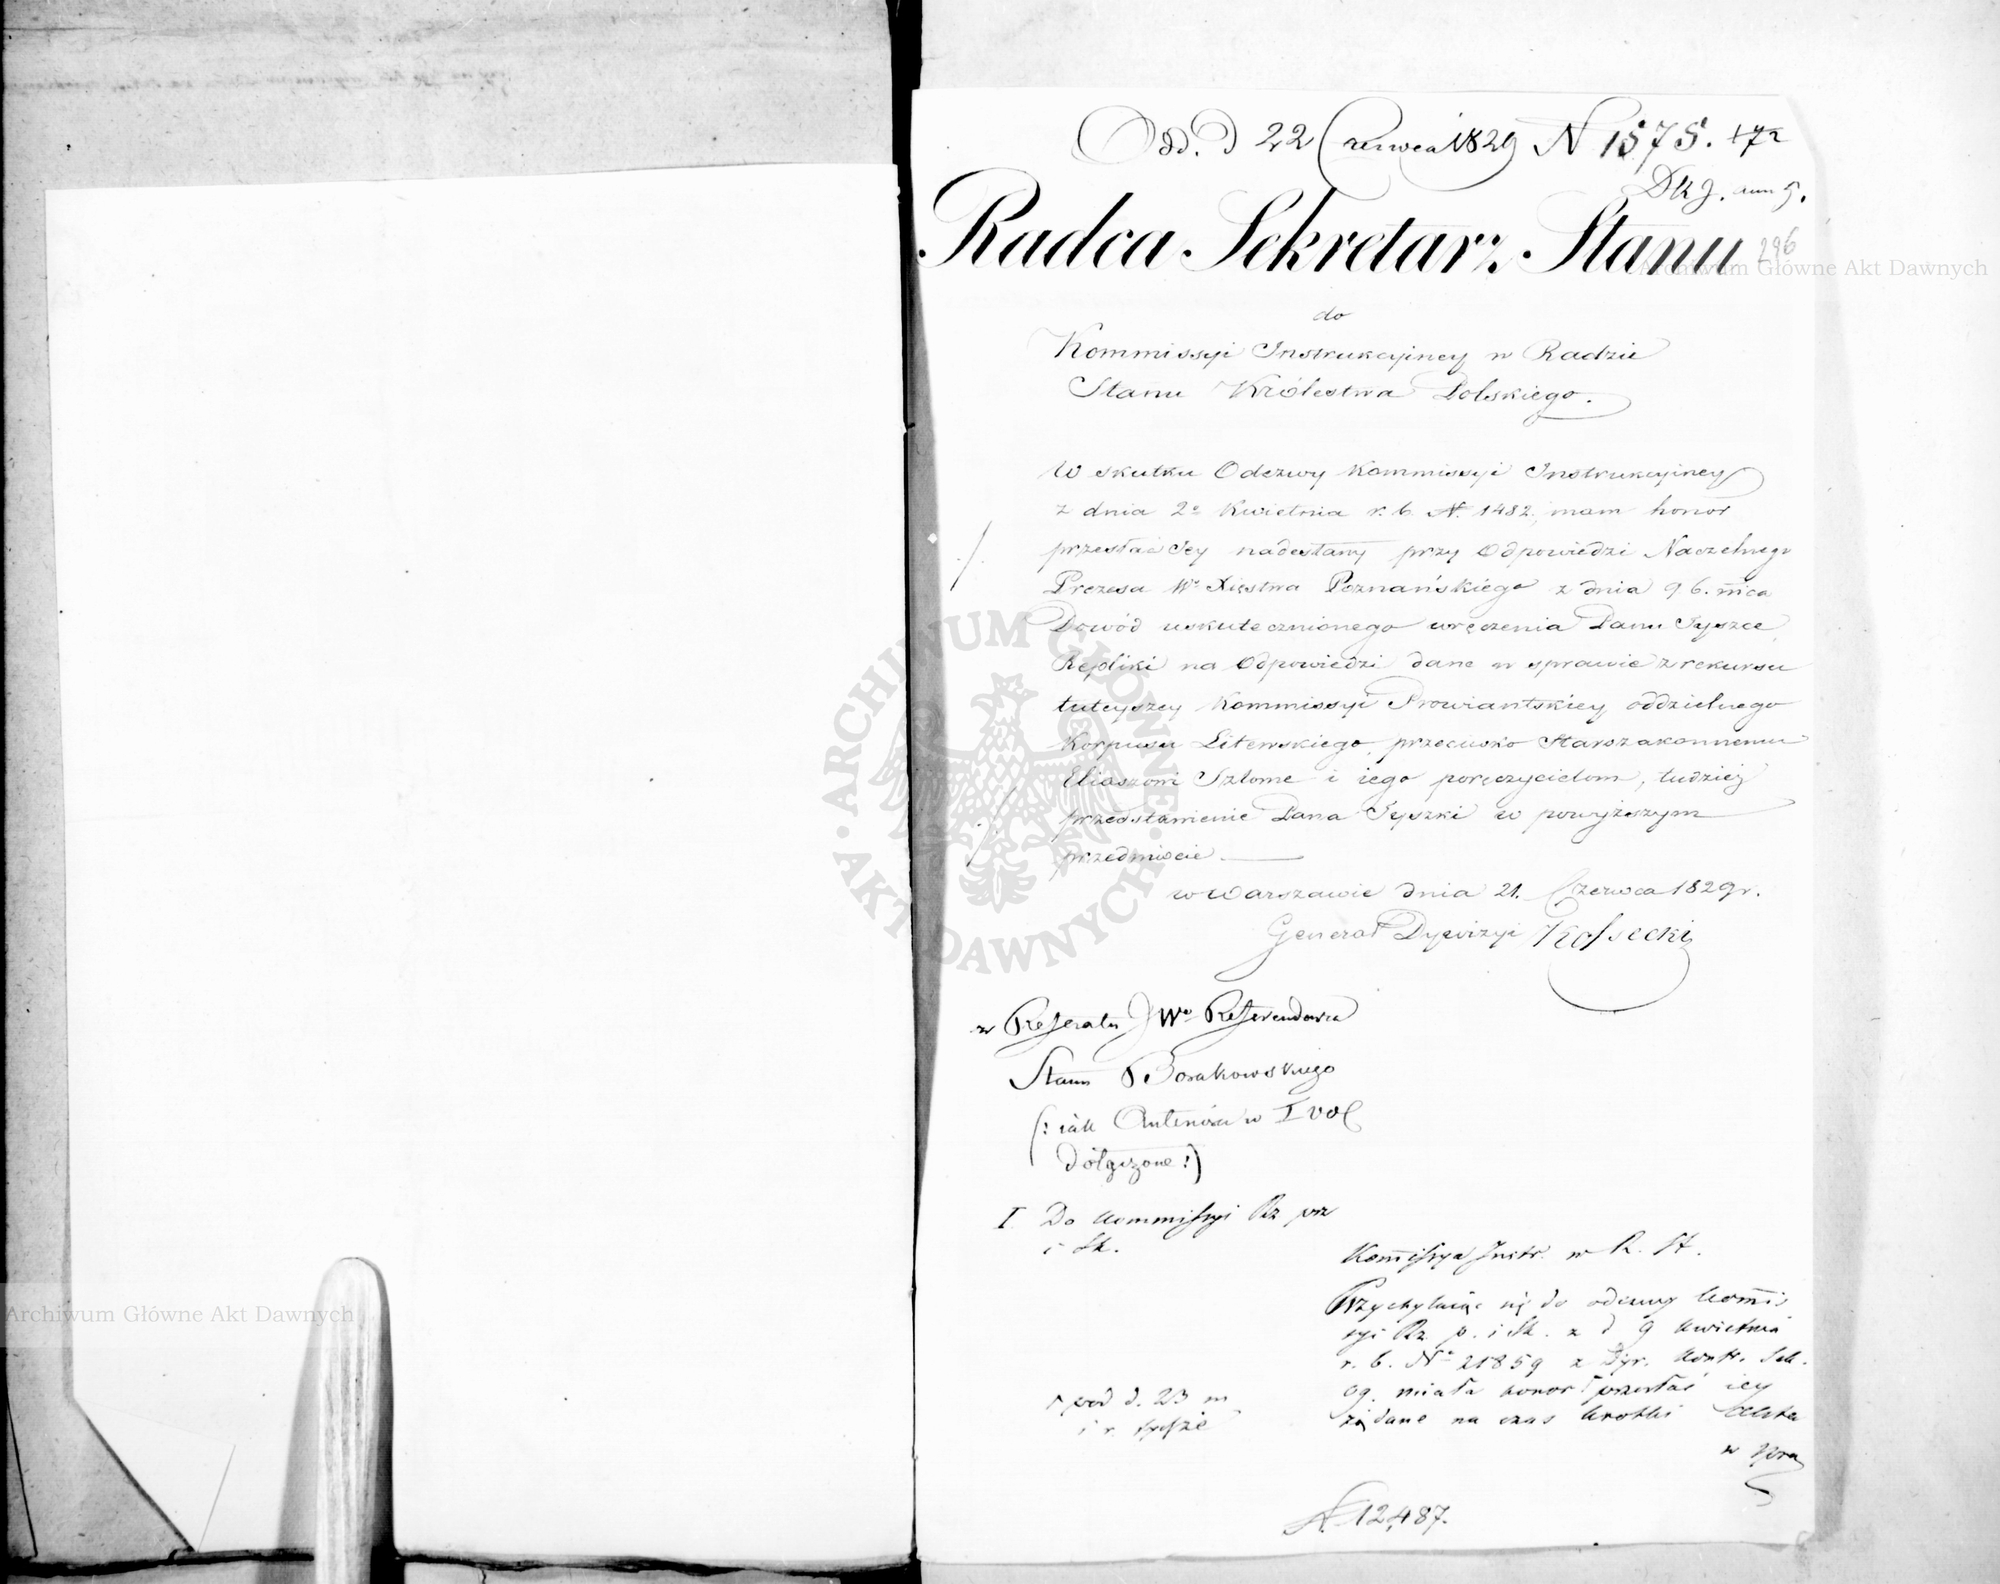 Odd. d 22 Czerwca 1829 N 1575.
Radca Sekretarz Stanu
296
do
Kommissyi Instrukcyiney w Radzie
Stanu Królestwa Polskiego.
W skutku Odezwy Kommissyi Instrukcyiney
z dnia 2º Kwietnia r. b. N. 1482, mam honor
przesłać Jey nadesłany przy Odpowiedzi Naczelnego
Prezesa Wº Xięstwa Poznańskiego z dnia 9 b. mca
Dowód uskutecznionego wręczenia Panu Tyszce
Repliki na Odpowiedzi dane w sprawie z rekursu
tuteyszey Kommissyi Prowiantskiey oddzielnego
Korpusu Litewskiego, przeciwko Starozakonnemu
Eliaszowi Szlome i iego poręczycielom, tudzież
przedstawienie Pana Tyszki w powyższym
przedmiocie.
w Warszawie dnia 21. Czerwca 1829 r.
Generał Dywizyi Kossecki
w Referatu JWº Referendarza
Stanu Borakowskiego
(: iak w I vol
:)
I. Do Kommissyi Rz
i Sk.
Kommissya Instr. w R. St.
Przychylaiąc się do odezwy Kommis
syi Rz. p. i Sk. z d 9 Kwietnia
r. b. Nº 21859 z Dyr. Kontr.
miała honor przesłać iey
żądane na czas krótki akta
w spra
pod d. 23 m
i r.
N. 12,487.
ARCHIWUM GŁÓWNE AKT DAWNYCH
Archiwum Główne Akt Dawnych
Archiwum Główne Akt Dawnych